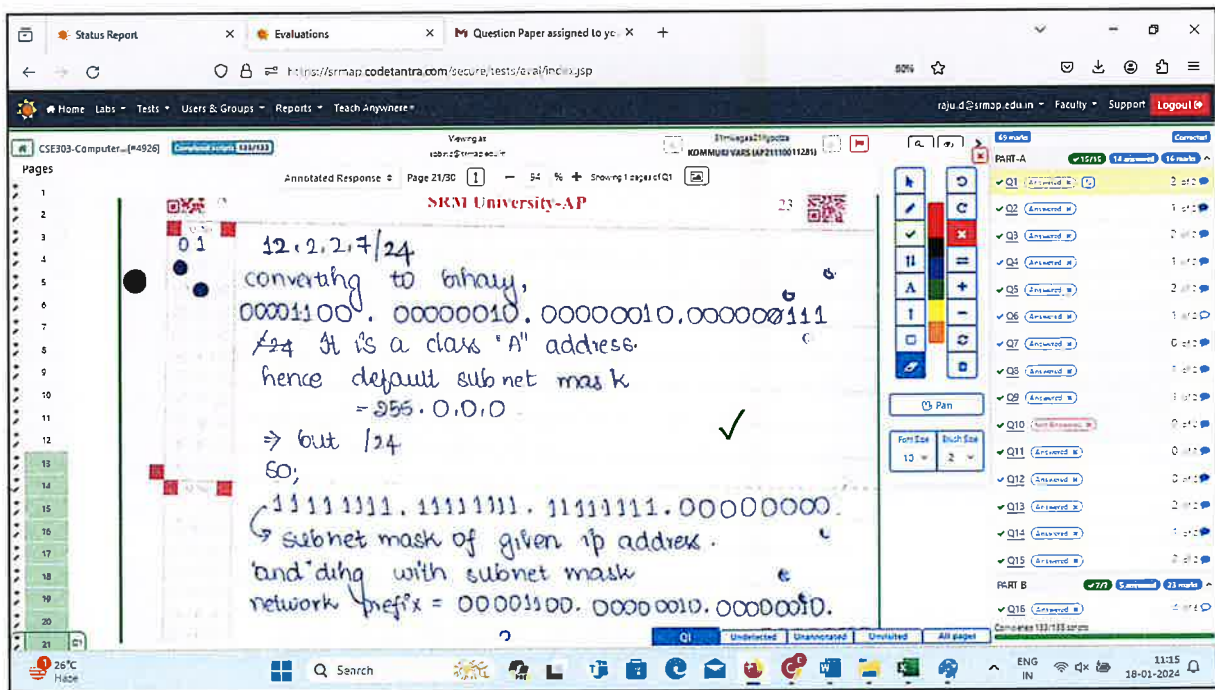 Status Report
Evaluations
Question Paper assigned to yc
srmap.codetantra.com/secure/tests/eval/index.jsp
80%
Home Labs Tests Users & Groups Reports Teach Anywhere
raju.d@srmap.edu.in Faculty Support Logout
CSE303-Computer...(#4926)
Completed scripts 133/133
Viewing as
KOMMURI VARS (AP21110011281)
69 marks
Corrected
Pages
Annotated Response Page 21/30 1 54 % Showing 1 pages of Q1
PART-A 15/15 14 answered 16 marks
SRM University-AP
23
0 1
12.2.2.7/24
converting to binary,
00001100. 00000010. 00000010.00000111
/24 It is a class "A" address.
hence default subnet mask
= 255.0.0.0
⇒ but /24
SO;
11111111.11111111.11111111.00000000.
subnet mask of given ip address.
'and'ding with subnet mask
network prefix = 00001100. 00000010. 00000010.
1
2
3
4
5
6
7
8
9
10
11
12
13
14
15
16
17
18
19
20
21 Q1
Pan
Font Size Brush Size
10 2
Q1 Answered
Q2 Answered
Q3 Answered
Q4 Answered
Q5 Answered
Q6 Answered
Q7 Answered
Q8 Answered
Q9 Answered
Q10 Not Answered
Q11 Answered
Q12 Answered
Q13 Answered
Q14 Answered
Q15 Answered
PART B 7/7 5 answered 23 marks
Q16 Answered
Completed 133/133 scripts
Q1 Undeleted Unannotated Unvisited All pages
26°C
Haze
Search
ENG
IN
11:15
18-01-2024